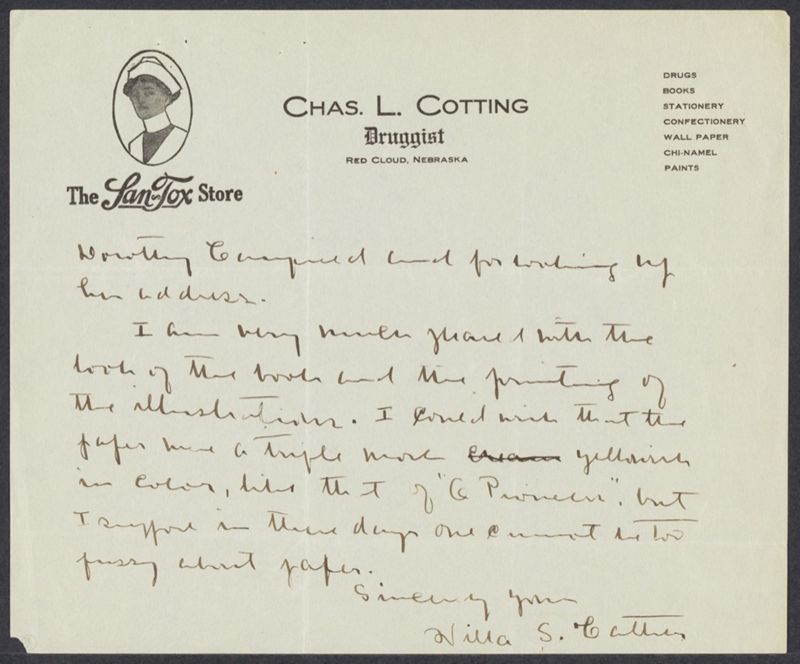 CHAS. L. COTTING
Druggist
RED CLOUD, NEBRASKA
The San-Tox Store
DRUGS
BOOKS
STATIONERY
CONFECTIONERY
WALL PAPER
CHI-NAMEL
PAINTS
Dorothy Canfield and forwarding my
her address.
I am very much pleased with the
look of the book and the printing of
the illustrations. I could wish that the
paper were a trifle more cream yellowish
in color, like that of "O Pioneers", but
I suppose in these days one cannot be too
fussy about paper.
Sincerely yours
Willa S. Cather